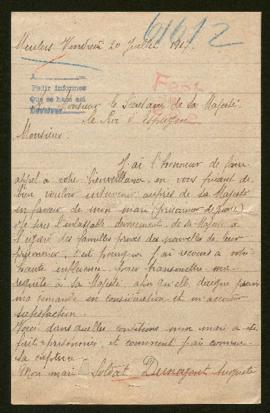 6/612
Vendredi 20 Juillet 1917
A
Pedir informes
Que se hace así
Monsieur le Secrétaire de Sa Majesté
le Roi d'Espagne
Monsieur.
J'ai l'honneur de faire
appel à votre bienveillance, en vous priant de
bien vouloir intervenir auprès de Sa Majesté
en faveur de mon mari (prisonnier de guerre)
dévouement de Sa Majesté à
l'égard des familles privées des nouvelles de leur
prisonnier, c'est pourquoi j'ai recours à votre
haute influence pour transmettre ma
requête à Sa Majesté, afin qu'elle daigne prendre
ma demande en considération et m'accorder
satisfaction.
Voici dans quelles conditions mon mari a été
fait prisonnier, et comment j'ai connu
sa capture
Mon mari Soldat Auguste